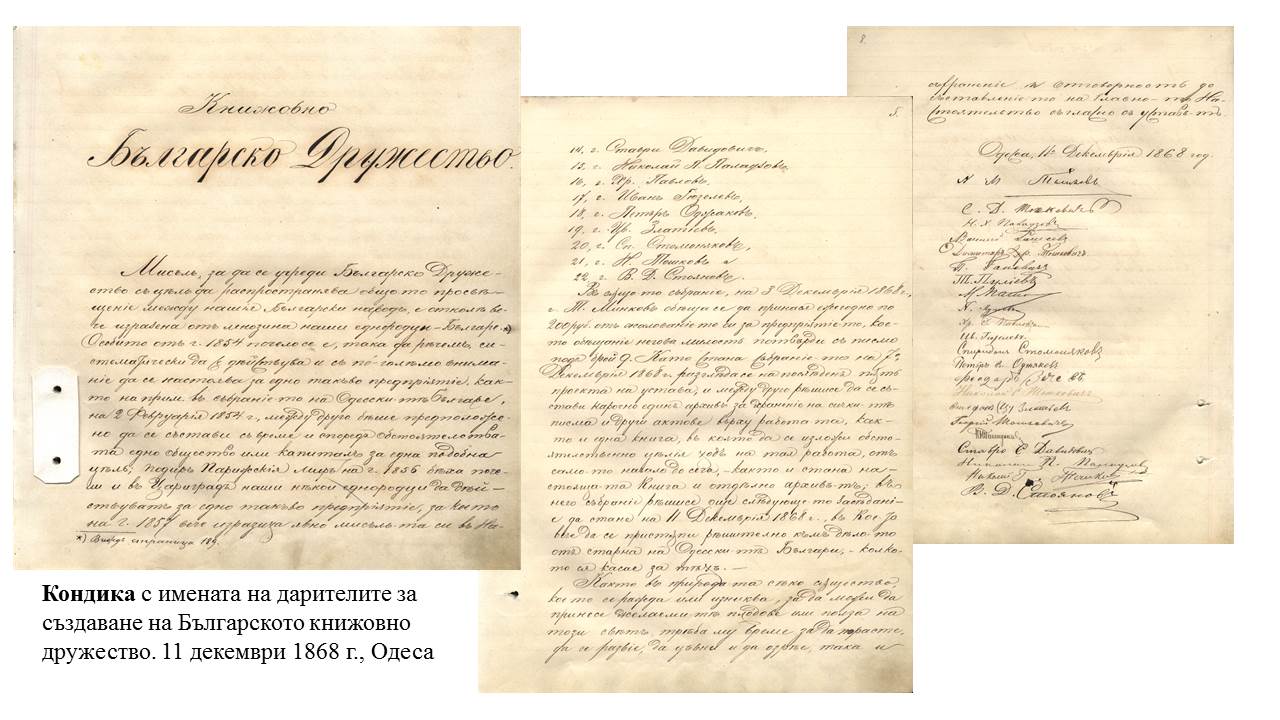 Книжовно
Българско Дружество.
Мисълъ, за да се уреди Болгарско Друже-
ство съ цѣлъ да распространява общото просвѣ-
щение между нашiй Български народъ, е отколѣ ве-
че изразена отъ мнозина наши еднородци-Българе.*)
Особито отъ г. 1854 почело се е, така да рѣчемъ, си-
стематически да с дѣйствува и съ по-голѣмо внима-
ние да се настоява за едно такъво предпрiятiе, как-
то на прим. въ събранiето на Одесски-тѣ Българе,
на 2 Февруарiя 1854 г., между друго бѣше предположе-
но да се състави съ време и споредъ обстоятелства-
та едно общество или капиталъ за една подобна
цѣль; подиръ Парижскiя Миръ на г. 1856 бѣха поче-
ли и въ Цариградъ наши нѣкои еднородци да дѣй-
ствуватъ за едно такъво предпрiятiе, за което
на г. 1857 вече изразиха явно мисълъ-та си въ На-
*) Виждъ страница 189.
5.
14, г. Ставри Давидовичъ,
15, г. Николай П. Палаузовъ,
16, г. Хр. Павловъ,
17, г. Иванъ Гюзелевъ,
18, г. Петъръ Оджаковъ,
19, г. Цв. Златиевъ,
20, г. Сп. Стомоняковъ,
21, г. Н. Тошковъ и
22, г. В. Д. Стояновъ.
Въ сѫщото събранiе, на 3 Декемврiя 1868 г.,
г. Т. Минковъ обѣща се да принася ежегодно по
200 руб. отъ жалованiето си за предпрiятiето, кое-
то обѣщание негова милость потвърди съ писмо
подъ брой 9. Като стана събранiе-то на 7
Декемврiя 1868 г. разгледа се на послѣденъ пѫть
проекта на устава, и между друго рѣшише да се съ-
стави нарочно единъ архивъ за хранение на сички-тѣ
писма и други актове върху работа та, как-
то и една книга, въ която да се изложи обсто-
ятелственно цѣлiя ходъ на тая работа, отъ
само-то начало до сега, -както и стана на-
стоища-та Книга и отдѣлно архивъ-тъ; въ
него събранiе рѣшише още слѣдующе-то Засѣданi-
е да стане на 11 Декемврiя 1868 г., въ кое-то
вече да се пристѫпи рѣшително към дѣло-то
отъ страна на Одесски-тѣ Българи, - колко-
то ся касае за тѣхъ. —
Както въ природа та сѣко сѫщество,
което се ражда или изниква, за да може да
принесе желаеми-тѣ плодове или полза на
този свѣтъ, трѣба му време за да порасте,
да се развiе, да цъвне и да озрѣе, така и
8.
събранiе и отговорность до
съставленiе то на Главно-то На-
стоятелство съгласно съ уставъ-тъ.
Одесса, 11 Декемврiя 1868 год.
Н М Тошковъ
С. Д. Тошковичъ
Н. Х. Палаузовъ
Димитъръ Хр. Тошковичъ
Хр. С. Павловъ
Ив. Гюзелевъ
Спиридонъ Стомоняковъ
Петъръ В. Оджаковъ
Николай С. Тошковичъ
Златиевъ
Георгiй Тошковичъ
Ставро С Давидовичъ
Николай П. Палаузовъ
В. Д. Стояновъ
Кондика с имената на дарителите за
създаване на Българското книжовно
дружество. 11 декември 1868 г., Одеса